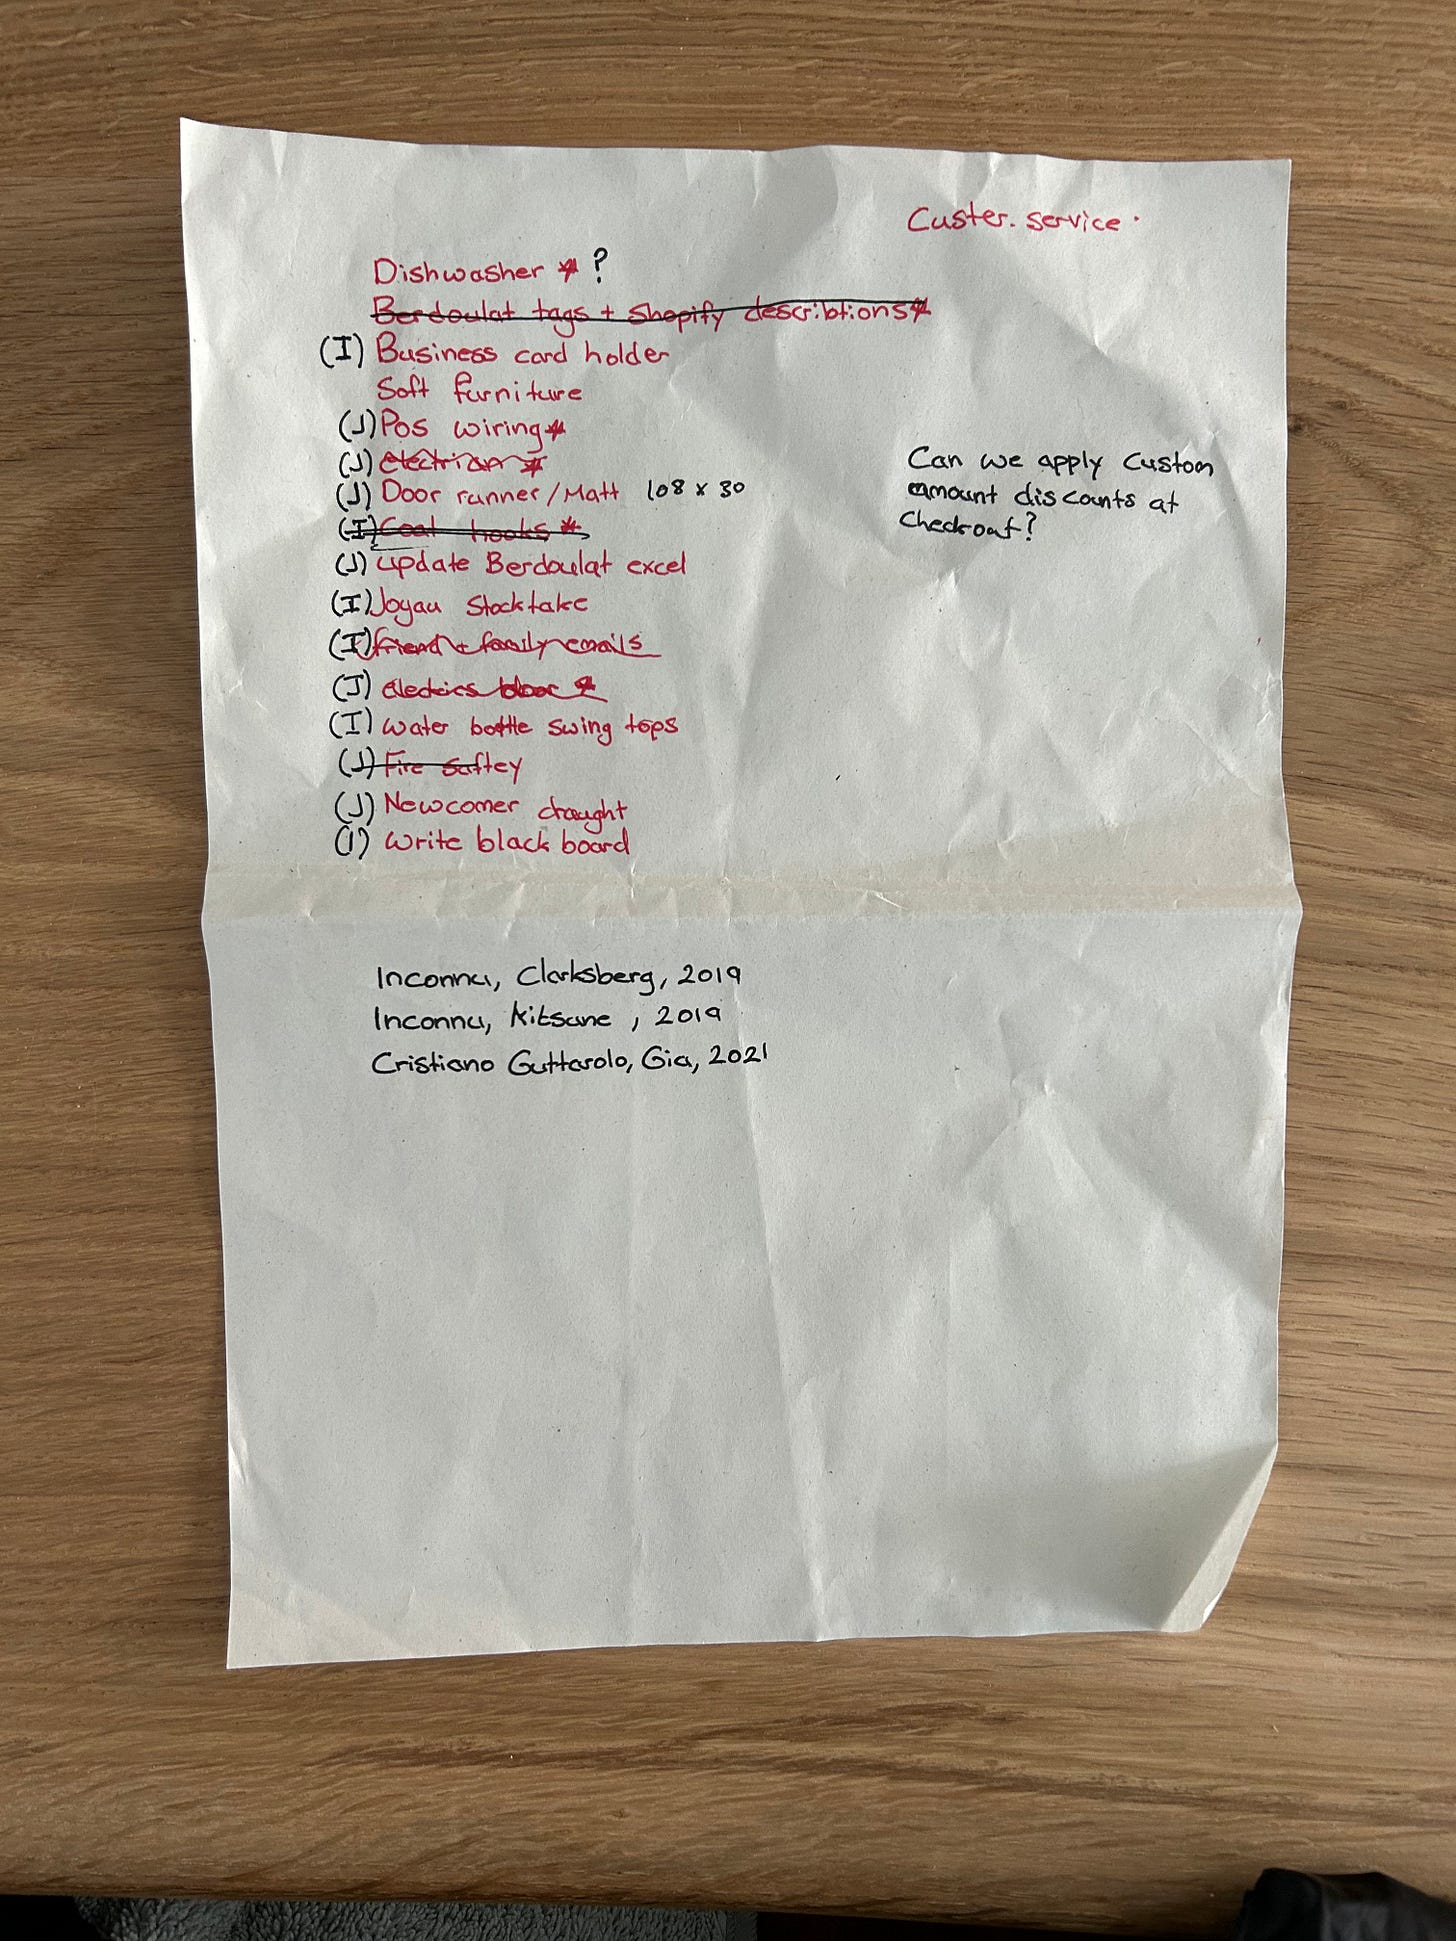 Custer. service.
Dishwasher * ?
Berdoulat tags + Shopify describtions*
(I) Business card holder
Soft furniture
(J) Pos wiring*
(J) electrian *
(J) Door runner/Matt 108 x 30
(I) Coat hooks *
(J) update Berdoulat excel
(I) Joyau Stocktake
(I) friend + family emails
(J) electrics door *
(I) water bottle swing tops
(J) Fire saftey
(J) Newcomer draught
(I) write black board
Can we apply custom
amount discounts at
checkout?
Inconnu, Clarksberg, 2019
Inconnu, Kitsune, 2019
Cristiano Guttarolo, Gia, 2021